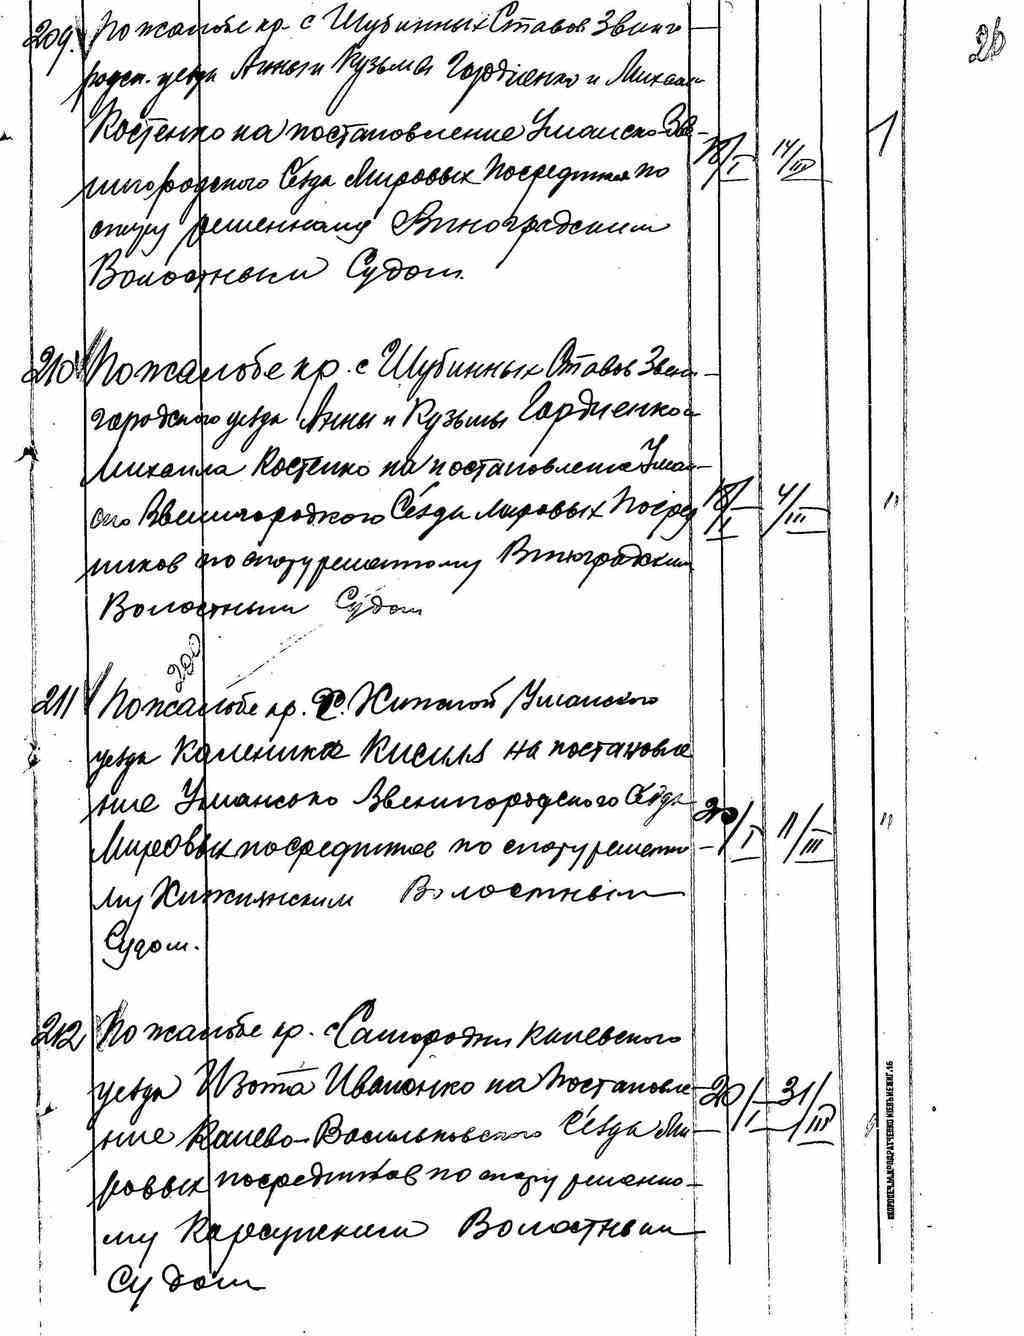 26
209. По жалобе кр. с Шубинных Ставов Звени
родск. уезда Анны и Кузьмы Гордиенко и Михаила
Костенко на постановление Уманско-Зве-
нигородского Съезда Мировых Посредников по
спору решенному Виноградским
Волостным Судом.
18/I 14/III 1
210 По жалобе кр. с Шубинных Ставов Звени-
городского уезда Анны и Кузьмы Гордиенко и
Михаила Костенко на постановление Уман-
ского Звенигородского Съезда мировых Посред
ников по спору решенному Виноградским
Волостным Судом
18/I 4/III "
200
211 По жалобе кр. с. Хижной Уманского
уезда Каленика Кисиля на постановле
ние Уманского Звенигородского Съезда
Мировых посредников по спору решенно
му Хижнянским Волостным
Судом.
20/I 11/III "
212 По жалобе кр. с Самородни Каневского
уезда Изота Иваненко на постановле-
ние Канево-Васильковского Съезда Ми-
ровых посредников по спору решенно-
му Карсунским Волостным
Судом
20/I 31/III